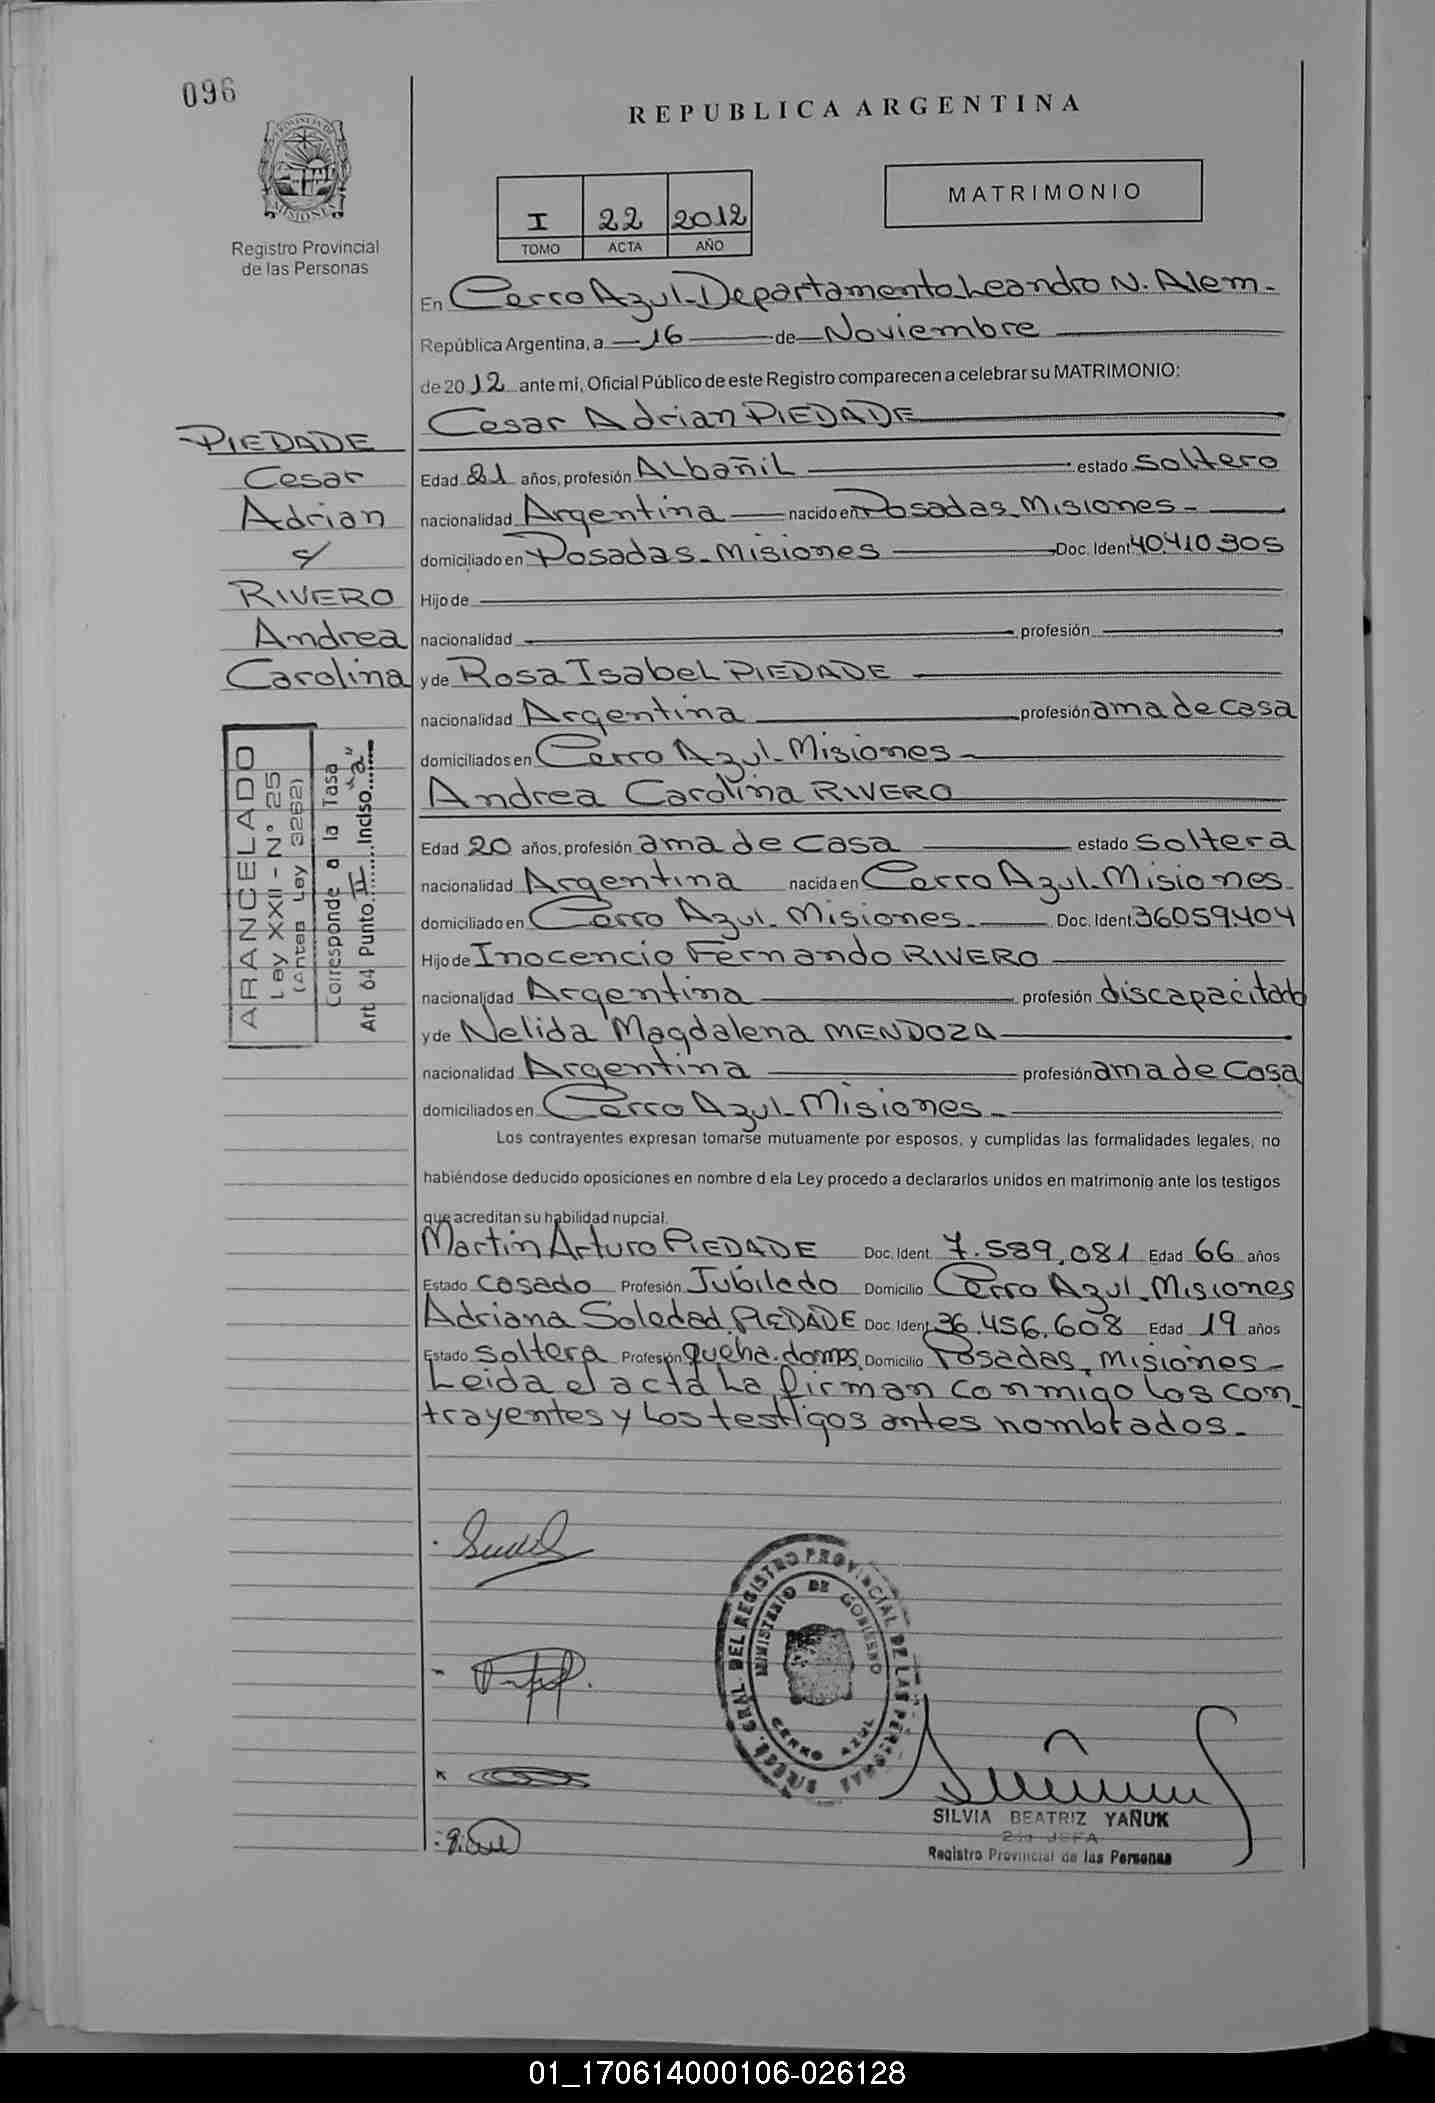 096
REPUBLICA ARGENTINA
PROVINCIA DE
MISIONES
Registro Provincial
de las Personas
MATRIMONIO
I 22 2012
TOMO ACTA AÑO
En Cerro Azul-Departamento Leandro N. Alem-
República Argentina, a 16 de Noviembre
de 2012 ante mi, Oficial Público de este Registro comparecen a celebrar su MATRIMONIO:
Cesar Adrian PIEDADE
PIEDADE
Cesar
Adrian
y
RIVERO
Andrea
Carolina
Edad 21 años, profesión Albañil estado soltero
nacionalidad Argentina nacido en Posadas-Misiones-
domiciliado en Posadas-Misiones Doc. Ident 40.410.905
Hijo de
nacionalidad profesión
y de Rosa Isabel PIEDADE
nacionalidad Argentina profesión ama de casa
domiciliados en Cerro Azul-Misiones-
Andrea Carolina RIVERO
Edad 20 años, profesión ama de casa estado soltera
nacionalidad Argentina nacida en Cerro Azul-Misiones-
domiciliado en Cerro Azul-Misiones- Doc. Ident. 36059.404
Hijo de Inocencio Fernando RIVERO
nacionalidad Argentina profesión discapacitado
y de Nelida Magdalena MENDOZA
nacionalidad Argentina profesión ama de casa
domiciliados en Cerro Azul-Misiones-
ARANCELADO
Ley XXII - N° 25
(Antes Ley 3262)
Corresponde a la Tasa
Art 64 Punto II Inciso "a"
Los contrayentes expresan tomarse mutuamente por esposos, y cumplidas las formalidades legales, no
habiéndose deducido oposiciones en nombre d ela Ley procedo a declararlos unidos en matrimonio ante los testigos
que acreditan su habilidad nupcial.
Martin Arturo PIEDADE Doc. Ident. 7.589.081 Edad 66 años
Estado casado Profesión Jubilado Domicilio Cerro Azul-Misiones
Adriana Soledad PIEDADE Doc. Ident. 36.456.608 Edad 19 años
Estado soltera Profesión queha. domes. Domicilio Posadas, Misiones-
Leida el acta La firman conmigo los con_
trayentes y los testigos antes nombrados.
DIRECC. GRAL. DEL REGISTRO PROVINCIAL DE LAS PERSONAS
MINISTERIO DE GOBIERNO
CERRO AZUL
SILVIA BEATRIZ YAÑUK
2da JEFA
Registro Provincial de las Personas
01_170614000106-026128